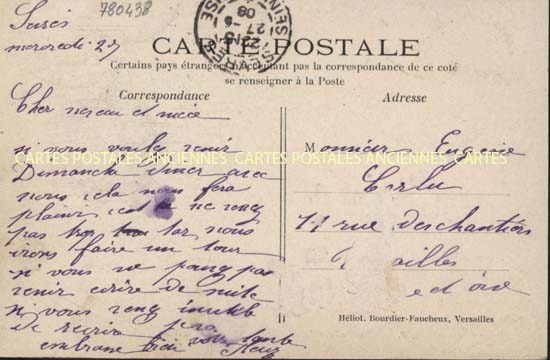 780438
mercredi 27
CARTE POSTALE
Certains pays étrangers n'acceptant pas la correspondance de ce coté
se renseigner à la Poste
Correspondance
Adresse
Cher neveu et niece
si vous voulez venir
Dimanche diner avec
nous cela nous fera
plaisir ne venez
pas tar nous
irons faire un tour
si vous ne pouvez pas
venir ecrire de suite
si vous venez inutile
de
embrasse
CARTES POSTALES ANCIENNES CARTES POSTALES ANCIENNES CARTES
Monsieur Eugene
11 rue des chantiers
et oise
Héliot. Bourdier-Faucheux, Versailles